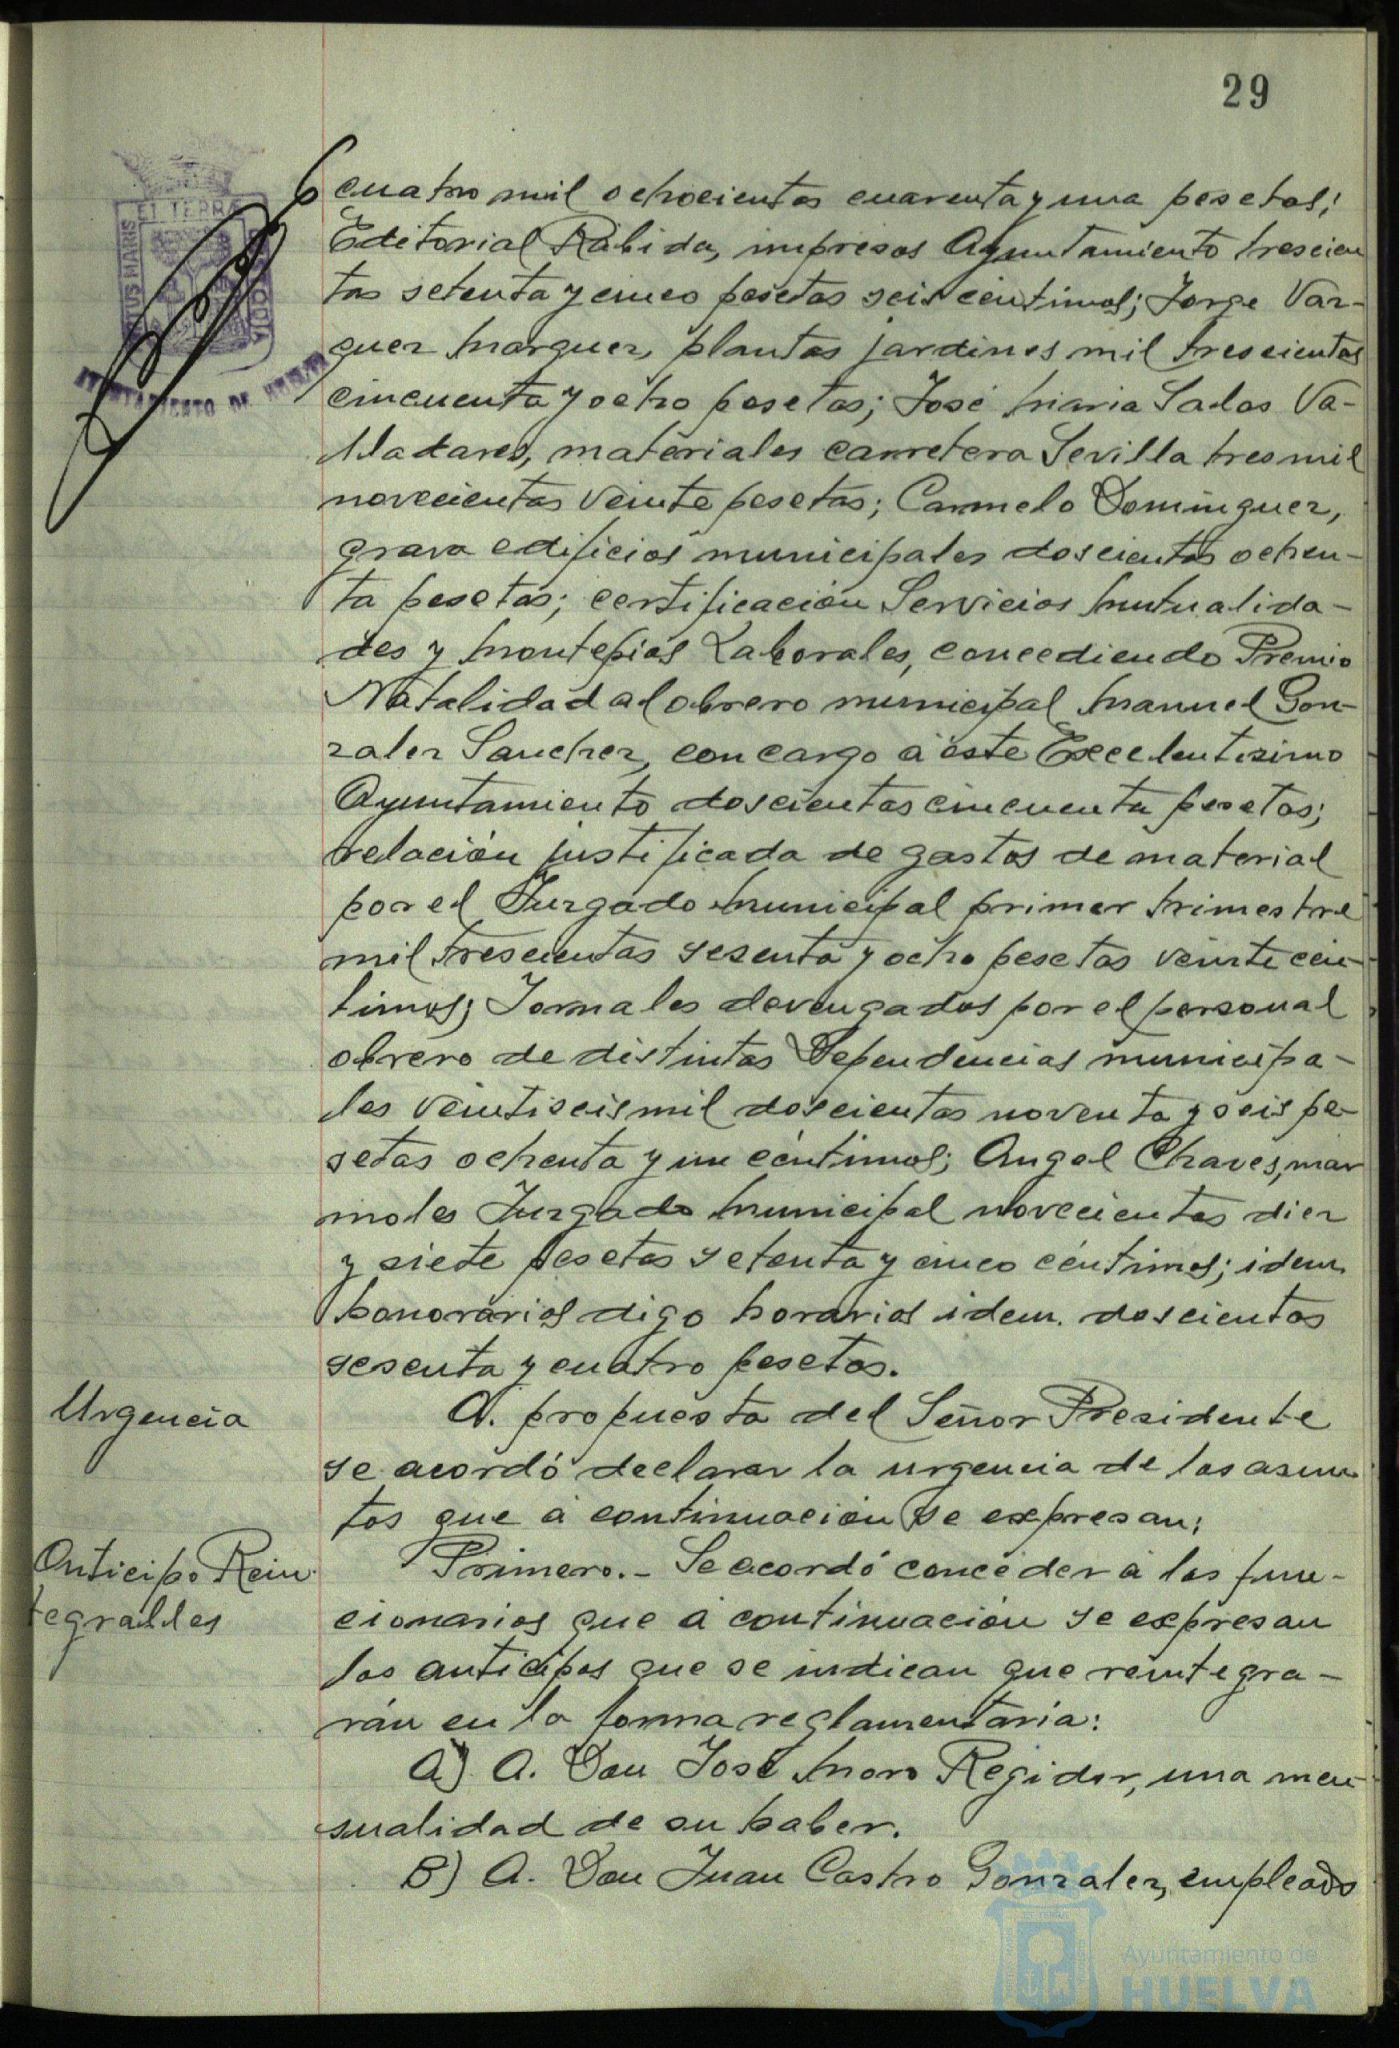 29
cuatro mil ochocientas cuarenta y una pesetas;
Editorial Rábida, impresos Ayuntamiento trescien
tas setenta y cinco pesetas seis céntimos; Jorge Vaz-
quez Marquez, plantas jardines mil trescientas
cincuenta y ocho pesetas; José Maria Salas Va-
lladares, materiales carretera Sevilla tres mil
novecientas veinte pesetas; Carmelo Dominguez,
grava edificios municipales doscientas ochen-
ta pesetas; certificación Servicios Mutualida-
des y Montepios Laborales, concediendo Premio
Natalidad al obrero municipal Manuel Gon-
zalez Sanchez, con cargo á este Excelentisimo
Ayuntamiento doscientas cincuenta pesetas;
relación justificada de gastos de material
por el Juzgado Municipal primer trimestre
mil trescientas sesenta y ocho pesetas veinte cén-
timos; Jornales devengados por el personal
obrero de distintas Dependencias municipa-
les veintiseis mil doscientas noventa y seis pe-
setas ochenta y un céntimos; Angel Chaves, mar
moles Juzgado Municipal novecientas diez
y siete pesetas setenta y cinco céntimos; idem
honorarios digo horarios idem. doscientas
sesenta y cuatro pesetas.
Urgencia
A. propuesta del Señor Presidente
se acordó declarar la urgencia de los asun
tos que á continuación se expresan:
Anticipo Rein
tegrables
Primero.- Se acordó conceder á los fun-
cionarios que á continuación se expresan
los anticipos que se indican que reintegra-
rán en la forma reglamentaria:
A) A. Don José Moro Regidor, una men-
sualidad de su haber.
B) A. Don Juan Castro Gonzalez, empleado
ET TERRÆ
AYUNTAMIENTO DE HUELVA
Ayuntamiento de
HUELVA